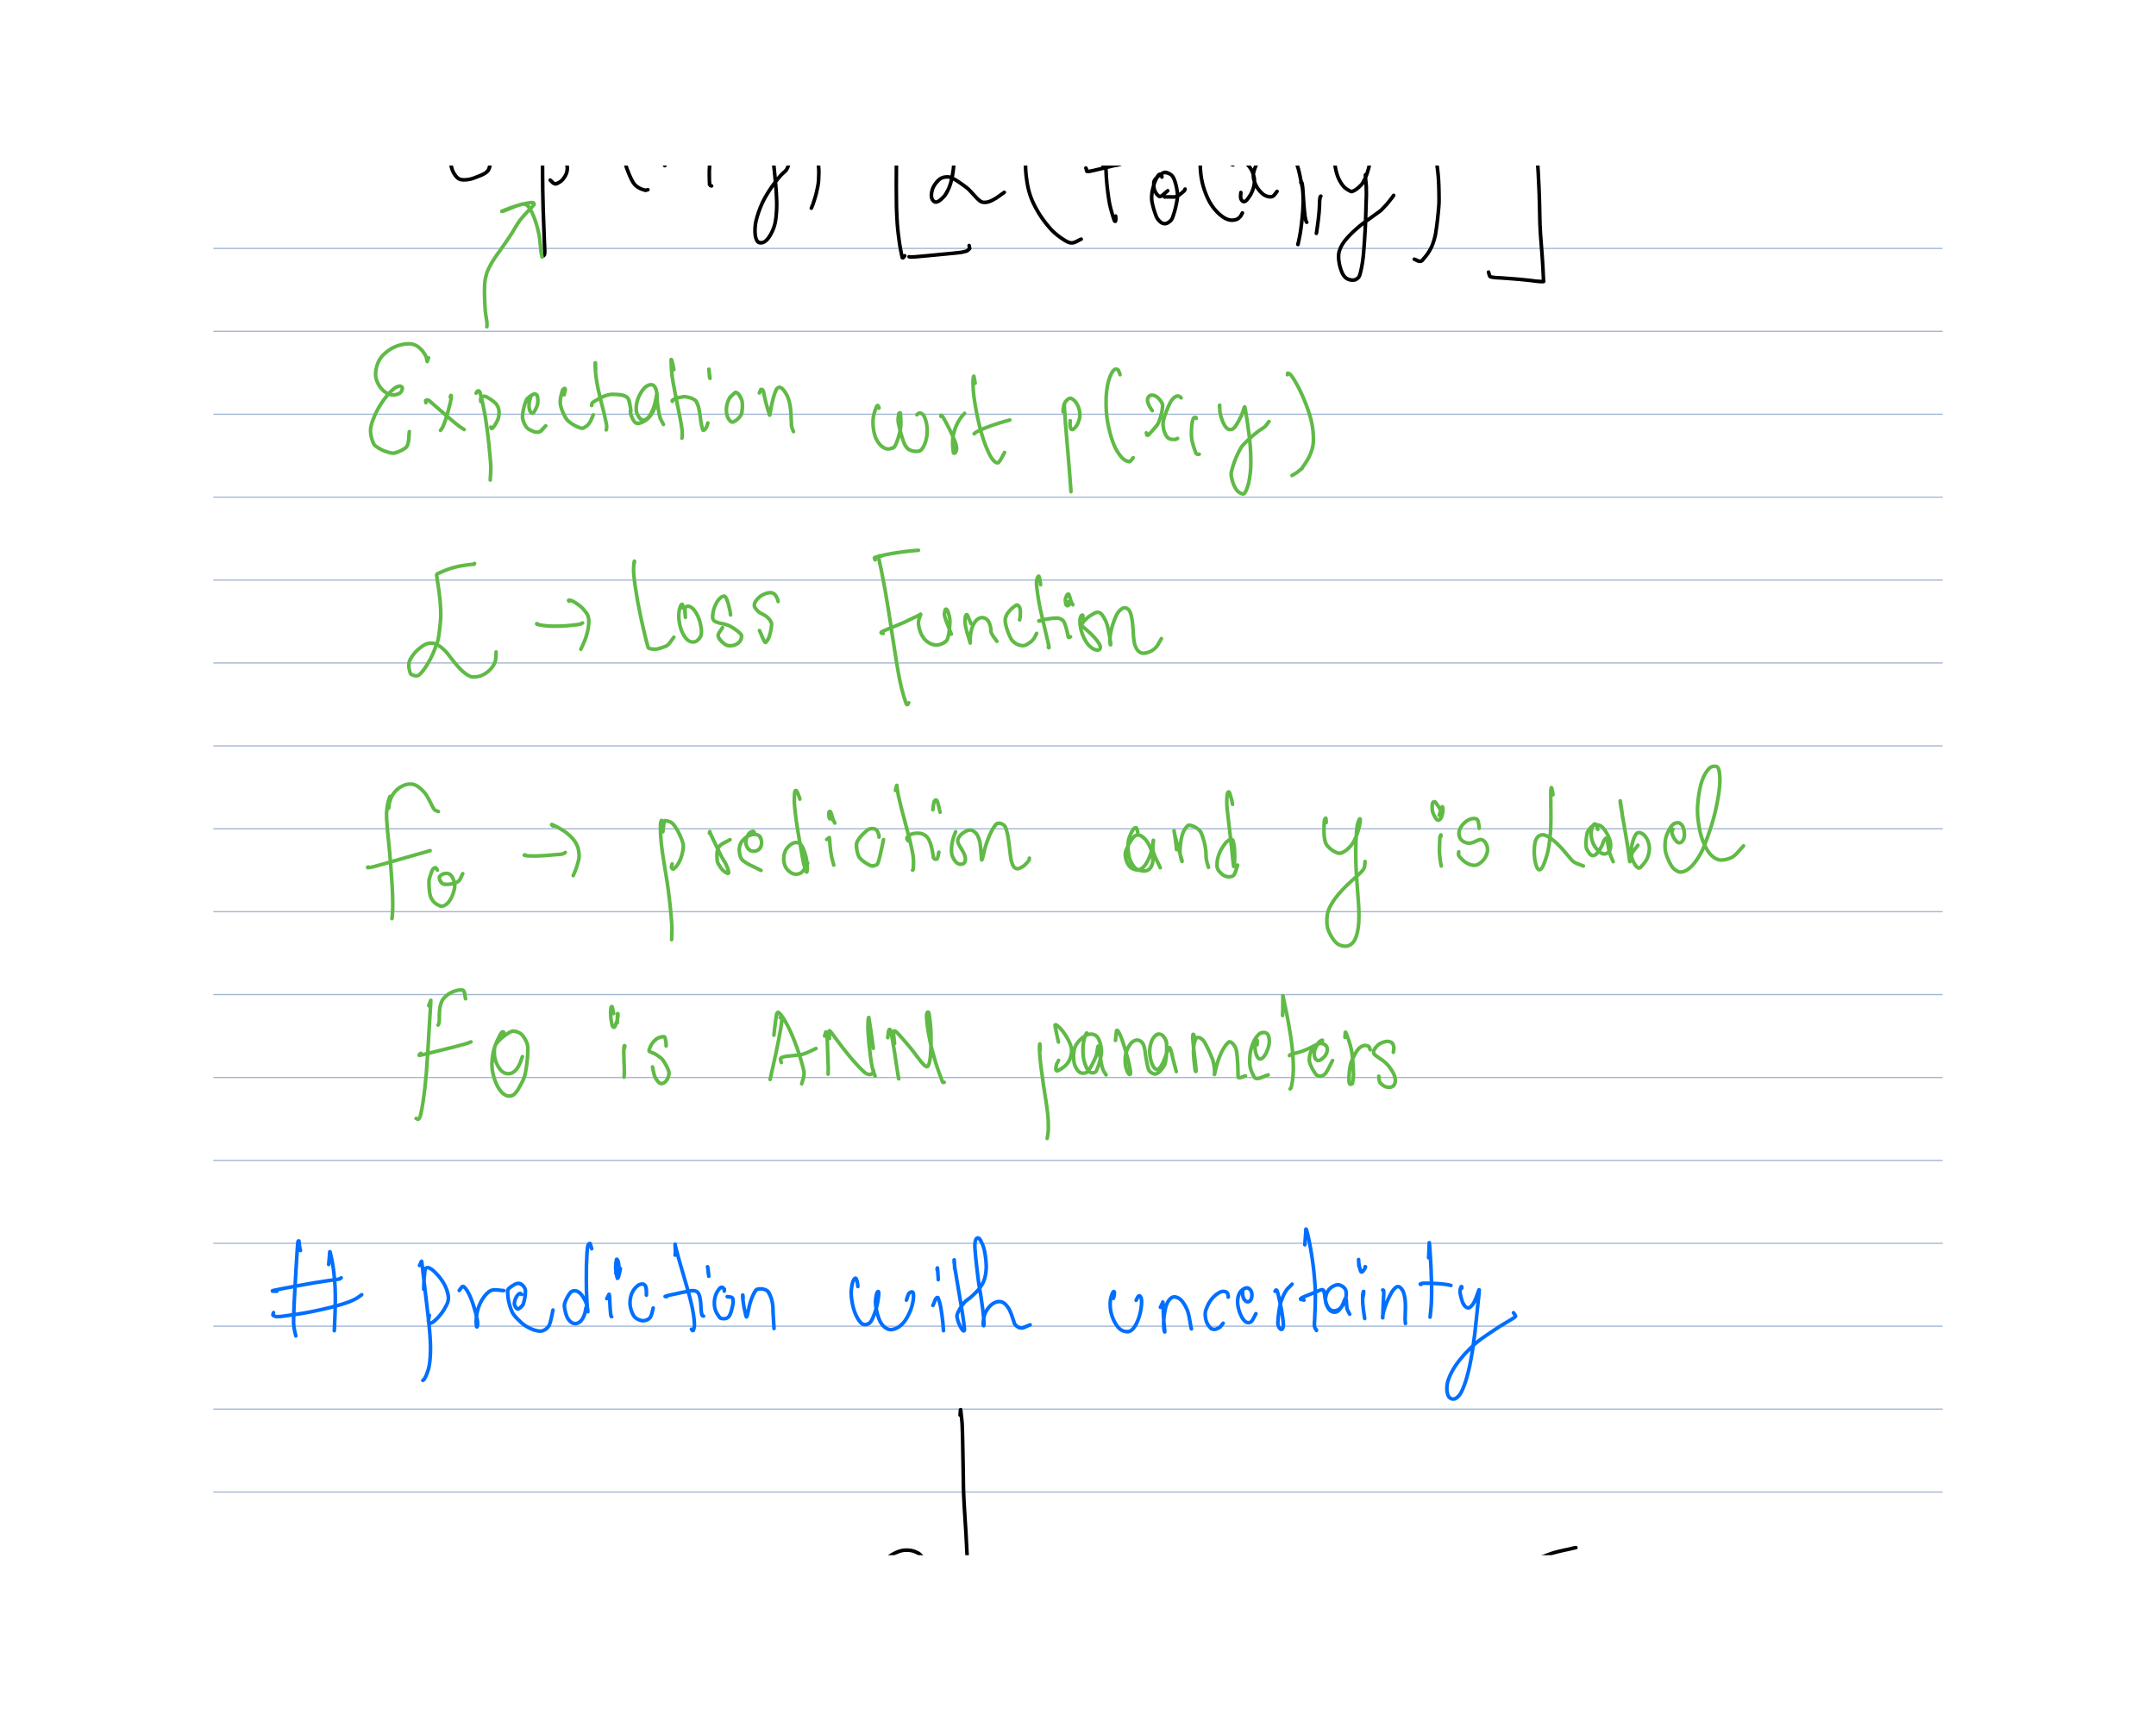 E p(x,y) [L(fθ(x), y)]
Expectation wrt p(x,y)
L → loss Function
fθ → prediction and y is label
fθ is ANN parameters
# prediction with uncertainty